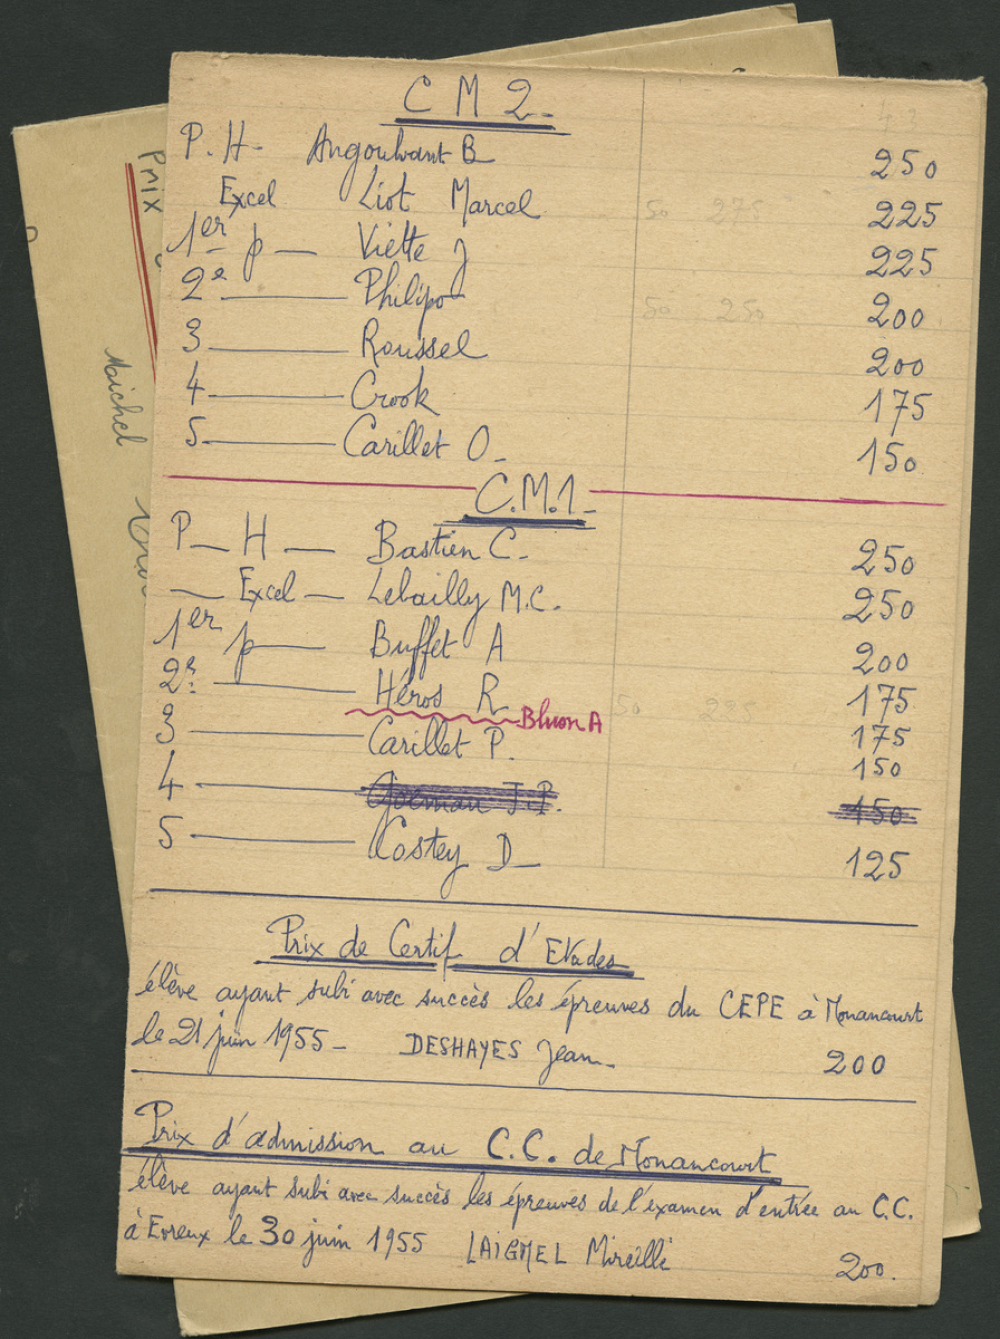 CM2
P. H. Angoulvant B 250
Excel Liot Marcel 50 275 225
1er p — Viette J 225
2e — Philipo 50 250 200
3 — Roussel 200
4 — Crook 175
5 — Carillet O. 150
C.M.1
P — H — Bastien C. 250
— Excel — Lebailly M.C. 250
1er p — Buffet A 200
2e — Héros R 50 225 175
Bluon A 175
3 — Carillet P. 150
4 — J.P. 150
5 — Costey D 125
Prix de Certif d'Etudes
élève ayant subi avec succès les épreuves du CEPE à Nonancourt
le 21 juin 1955 — DESHAYES Jean 200
Prix d'admission au C.C. de Nonancourt
élève ayant subi avec succès les épreuves de l'examen d'entrée au C.C.
à Evreux le 30 juin 1955 LAIGNEL Mireille 200.
Prix
Michel